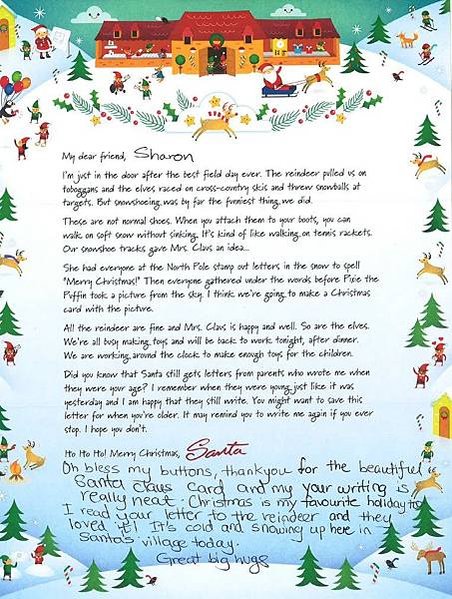 My dear friend, Sharon
I'm just in the door after the best field day ever. The reindeer pulled us on
toboggans and the elves raced on cross-country skis and threw snowballs at
targets. But snowshoeing was by far the funniest thing we did.
These are not normal shoes. When you attach them to your boots, you can
walk on soft snow without sinking. It's kind of like walking on tennis rackets.
Our snowshoe tracks gave Mrs. Claus an idea...
She had everyone at the North Pole stamp out letters in the snow to spell
"Merry Christmas!" Then everyone gathered under the words before Pixie the
Puffin took a picture from the sky. I think we're going to make a Christmas
card with the picture.
All the reindeer are fine and Mrs. Claus is happy and well. So are the elves.
We're all busy making toys and will be back to work tonight, after dinner.
We are working around the clock to make enough toys for the children.
Did you know that Santa still gets letters from parents who wrote me when
they were your age? I remember when they were young just like it was
yesterday and I am happy that they still write. You might want to save this
letter for when you're older. It may remind you to write me again if you ever
stop. I hope you don't.
Ho Ho Ho! Merry Christmas, Santa
Oh bless my buttons, thankyou for the beautiful
Santa Claus card and my your writing is
really neat. Christmas is my favourite holiday to
I read your letter to the reindeer and they
loved it! It's cold and snowing up here in
Santa's village today.
Great big hugs